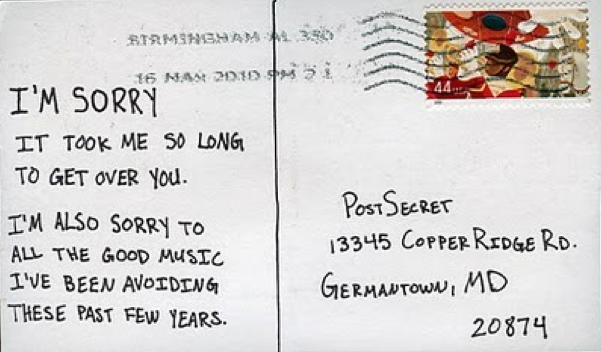 BIRMINGHAM AL 350
16 MAR 2010 PM 2 L
44
I'M SORRY
IT TOOK ME SO LONG
TO GET OVER YOU.
I'M ALSO SORRY TO
ALL THE GOOD MUSIC
I'VE BEEN AVOIDING
THESE PAST FEW YEARS.
POSTSECRET
13345 COPPER RIDGE RD.
GERMANTOWN, MD
20874